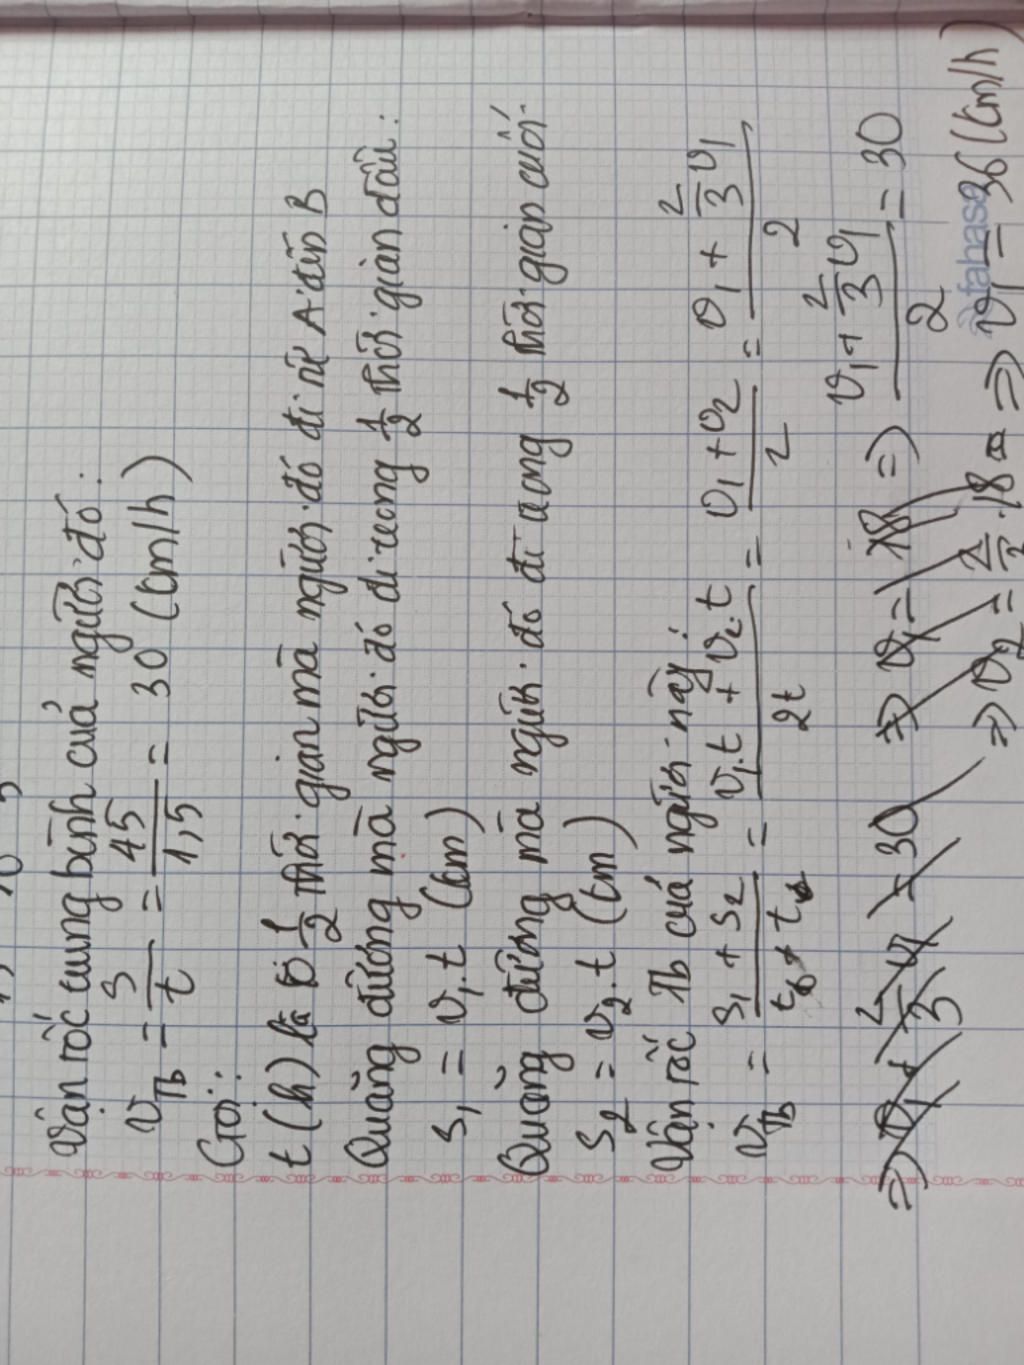 Vận tốc trung bình của người đó:
v_Tb = S/t = 45/1,5 = 30 (km/h)
Gọi:
t (h) là 1/2 thời gian mà người đó đi từ A đến B
Quãng đường mà người đó đi trong 1/2 thời gian đầu:
S₁ = v₁.t (km)
Quãng đường mà người đó đi trong 1/2 thời gian cuối.
S₂ = v₂.t (km)
Vận tốc Tb của người này:
v_Tb = (S₁ + S₂)/(t + t) = (v₁.t + v₂.t)/2t = (v₁ + v₂)/2 = (v₁ + 2/3 v₁)/2
=> v₁ + 2/3 v₁ = 30 => v₁ = 18 => (v₁ + 2/3 v₁)/2 = 30
=> v₂ = .18 = => v₁ = 36 (km/h)
fahasa